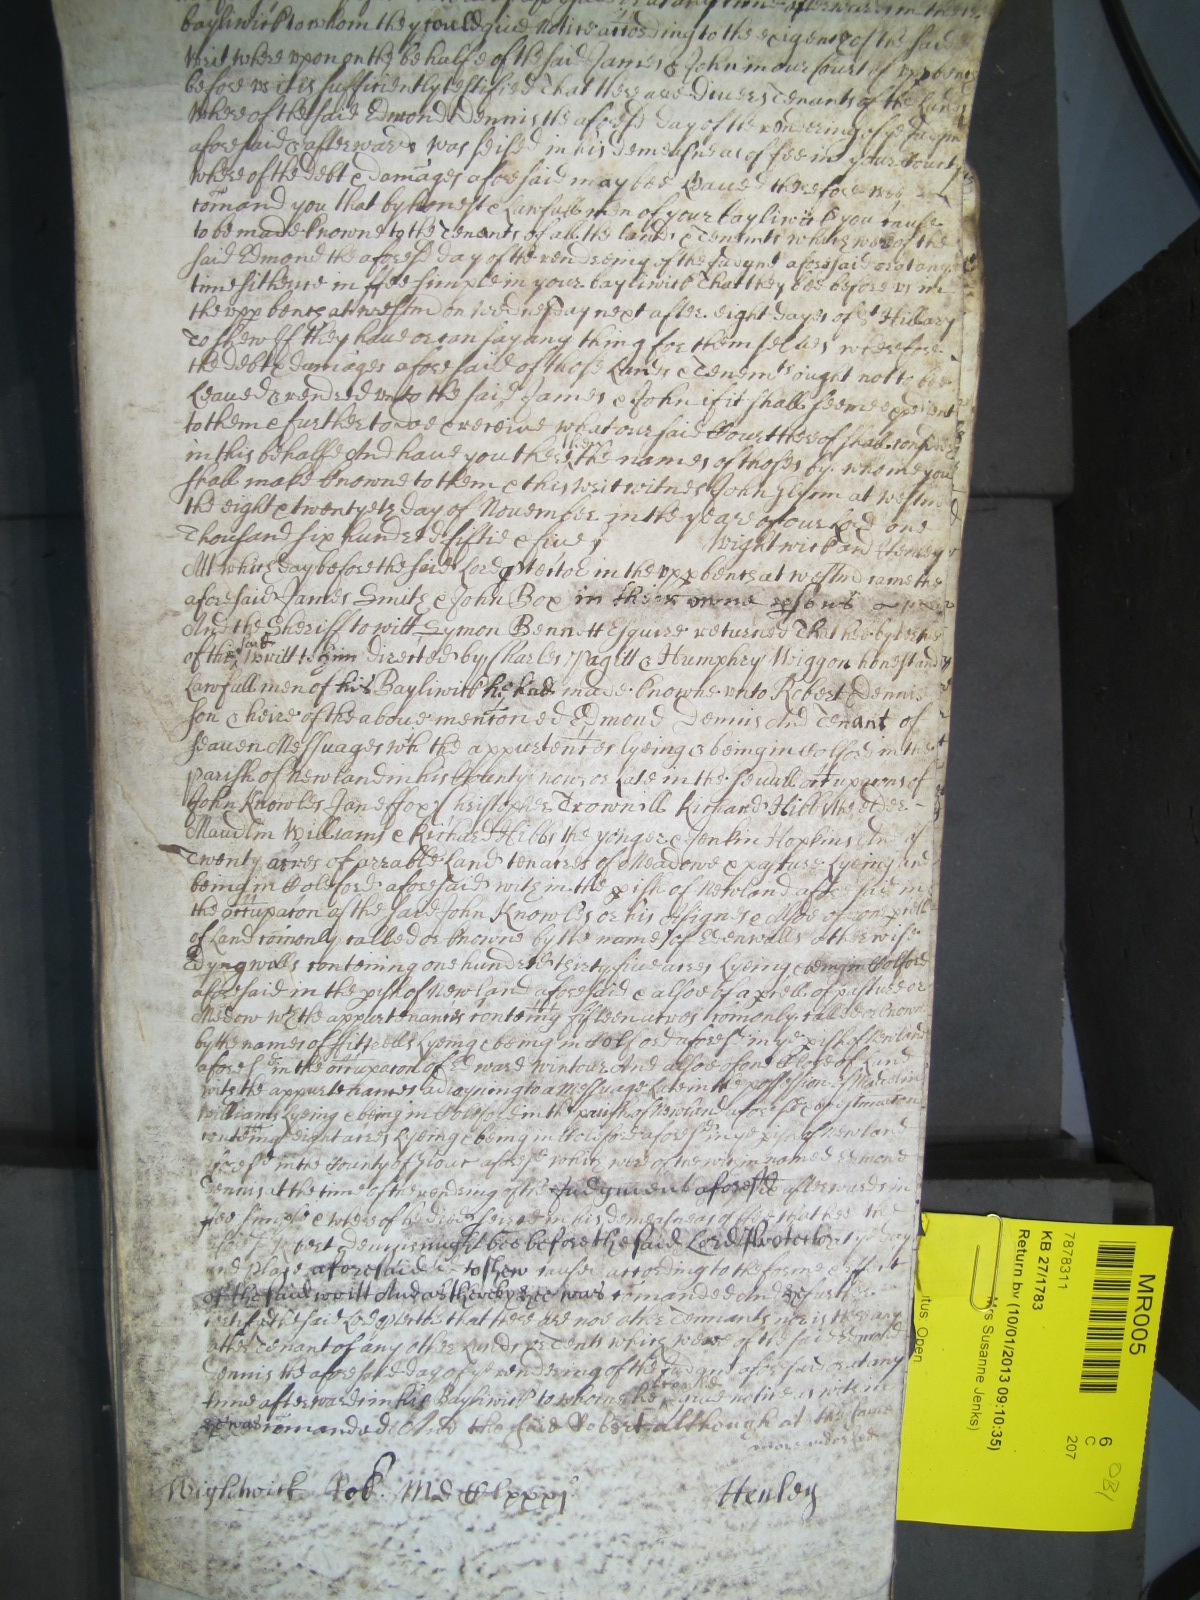 bayliwick to whom they could give notice according to the exigence of the said
writ where upon on the behalfe of the said James & John in our Court of upp bench
before us it is sufficiently testified That there are divers Tenants of the Lands
where of the said Edmond Dennis the aforesd day of the rendering of ye Judgmt
aforesaid & afterwards was seised in his demeasne as of fee in your County
where of the debt & damages aforesaid may bee Leavied therefore wee
comand you that by honest & Lawfull men of your bayliwick you cause
to be made knowne to the Tenants of all the lands & Tenemts which were of the
said Edmond the aforesd day of the rendreing of the Judgmt aforesaid or at any
time sithence in ffee simple in your bayliwick That they bee before us in
the upp bench at westm on Wednesday next after eight dayes of St Hillary
To shew If they have or can say any thing for themselves wherefore
the debt & damages aforesaid of those Lands & Tenemts ought not to bee
Leavied & rendred unto the said James & John if it shall seeme expedient
to them & further to doe & receive what our said Court thereof shall consider
in this behalfe And have you there then the names of those by whome you
shall make knowne to them & this writ witnes John Glynn at westm
the eight & twentyeth day of November in the yeare of our Lord one
Thousand six hundred fiftie & five Wightwick and Henley
At which day before the said Lord Protector in the upp bench at westm came the
aforesaid James Smith & John Box in their owne psons
And the Sheriff to witt Symon Bennett Esquire returned That hee by vertue
of the said writt to him directed by Charles Pagitt & Humphry Wiggon honest and
Lawfull men of his Bayliwick he had made knowne unto Robert Dennis
son & heire of the above mentioned Edmond Dennis And Tenant of
seaven Messuages wth the appurtennces lyeing & being in Colford in the
Parish of Newland in his County now or late in the severall occupacons of
John Knowles Jane ffox Christopher Trownill Richard Hibbs the elder
Maudlin Williams & Richard Hibbs the yonger & Jenkin Hopkins And of
Twenty acres of arrable Land ten acres of Meadowe & pasture Lyeing and
being in Coleford aforesaid with in the pish of Newland aforesaid in
the occupacon of the said John Knowles or his Assignes & Alsoe of one pcell
of Land comonly called or knowne by the names of Edenwalls otherwise
Edyngwalls conteining one hundred thirty five acres Lyeing & being in Colford
aforesaid in the pish of Newland aforesaid & alsoe of a pcell of pasture or
Meadow wth the appurtenances conteing fifteen acres comonly called or knowne
by the names of ffitzeells Lyeing & being in Colford aforesd in ye pish of Newland
aforesd in the occupacon of Edward wintour And alsoe of one Close of Land
with the appurtenances adioyning to a Messuage Late in the possession of Maudlin
Williams Lyeing & being in Colford in the parish of Newland aforesd & by estimacon
conteing eight acres Lyeing & being in Coleford aforesd in ye pish of Newland
aforesd in the County of Glouc aforesd which were of the within named Edmond
Dennis at the time of the rendring of the Judgment aforesd & afterwards in
fee simple & where of he died seised in his demeasne as of fee that hee the
said Robert Dennis might bee before the said Lord Protector at ye day
and place aforesaid to shew cause according to the forme & effect
of the said writt And as thereby hee was comanded And hee further
certifi the said Lord Protector that there are noe other Tennants nor is there any
other Tenant of any other Lands or Tenemts which were of the said Edmond
Dennis the aforesaid day of ye rendering of the Judgmt aforesaid or at any
time afterwards in his Bayliwick to whome he could give notice as within
hee was comanded And the said Robert although at the same
Wightwick Rot. MDCClxxxj Henley
MR005
6
C
207
7878311
KB 27/1783
Return by (10/01/2013 09:10:35)
Mrs Susanne Jenks)
itus Open